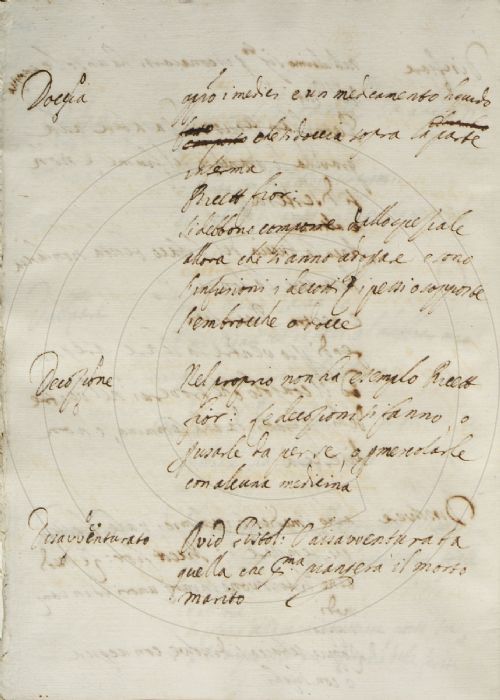 Doccia appo i medici e un medicamento liquido
che si doccia sopra la parte
inferma
Ricett fior:
si debbono comporre dallo speziale
allora che s'anno a e sono
l'infusioni i decotti i pessi o supposte
l'embrocche o docce
Decozione Nel proprio non ha esempio Ricett
fior: le decozioni si fanno, o
p usarle da per se, o p mescolarle
con alcuna medicina
Disavventurato Ovid Pistol: Disavventurata
quella che pma piangera il morto
marito